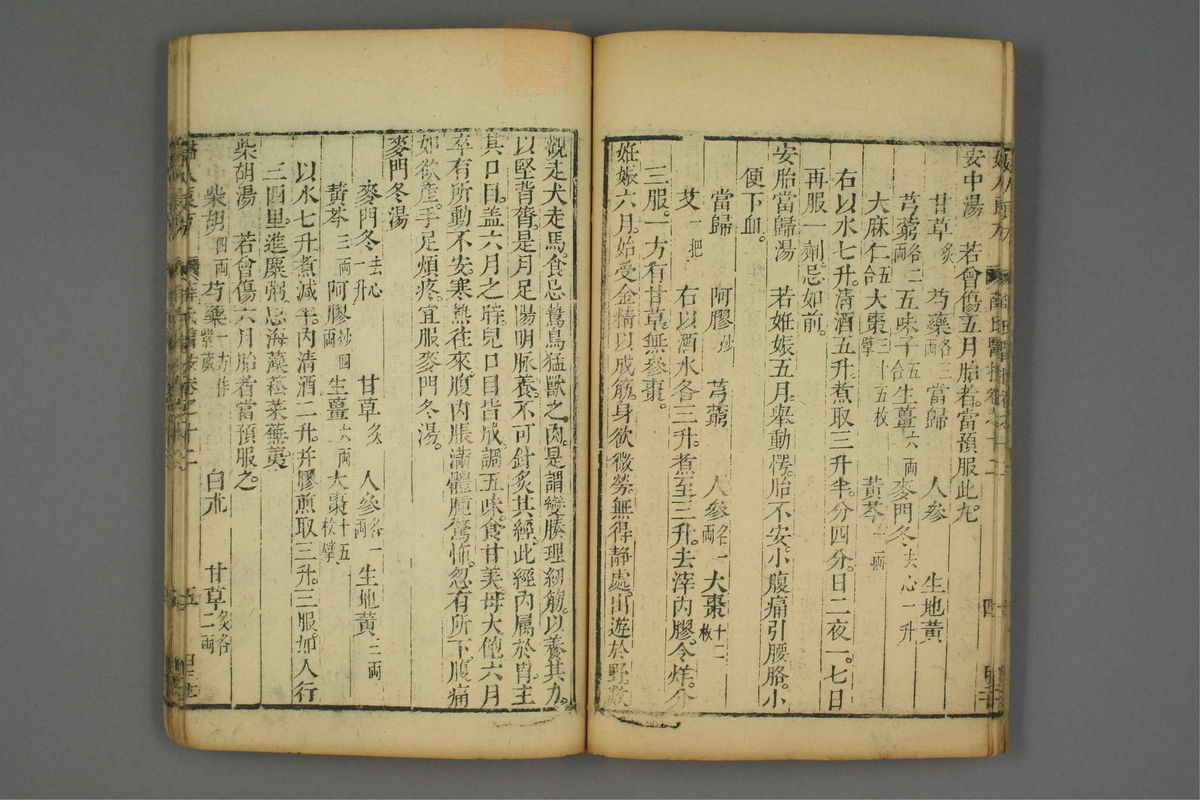 安中湯 若曾傷五月胎者當預服此九
甘草炙 芍藥各三兩 當歸 人參 生地黃
芎藭各二兩 五味子五合 生薑六兩 麥門冬去心一升
大麻仁五合 大棗三十五枚擘 黃芩一兩
右以水七升清酒五升煮取三升半分四分日二夜一七日
再服一劑忌如前
安胎當歸湯 若妊娠五月舉動愕胎不安小腹痛引腰胳小
便下血
當歸 阿膠炒 芎藭 人參各一兩 大棗十二枚
艾一把 右以酒水各三升煮至三升去滓內膠令烊分
三服一方有甘草無參棗
妊娠六月始受金精以成筋身欲微勞無得靜處出遊於野數
觀走犬走馬食忌鷙鳥猛獸之肉是謂變腠理紉筋以養其力
以堅背膂是月足陽明脉養不可針炙其經此經內屬於胃主
其口目蓋六月之時兒口目皆成調五味食甘美母大飽六月
卒有所動不安寒熱往來腹內脹滿體腫驚怖忽有所下腹痛
如欲產手足煩疼宜服麥門冬湯
麥門冬湯
麥門冬去心一升 甘草炙 人參各一兩 生地黃三兩
黃芩三兩 阿膠炒四兩 生薑六兩 大棗十五枚擘
以水七升煮減半內清酒二升并膠煎取三升三服如人行
三四里進糜粥忌海藻菘菜蕪荑
柴胡湯 若曾傷六月胎者當預服之
柴胡四兩 芍藥一方作紫葳 白朮 甘草炙各二兩
五